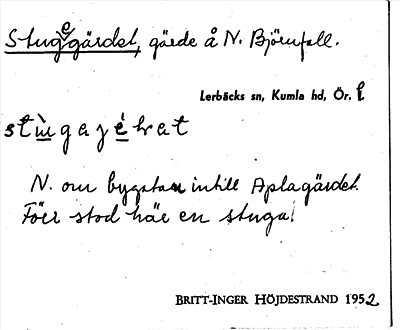 Stugegärdet, gärde å N. Björnfall.
Lerbäcks sn, Kumla hd, Ör. l.
stùgajéⱨat
N. om bygatan intill Aplagärdet.
Förr stod här en stuga.
BRITT-INGER HÖJDESTRAND 1952